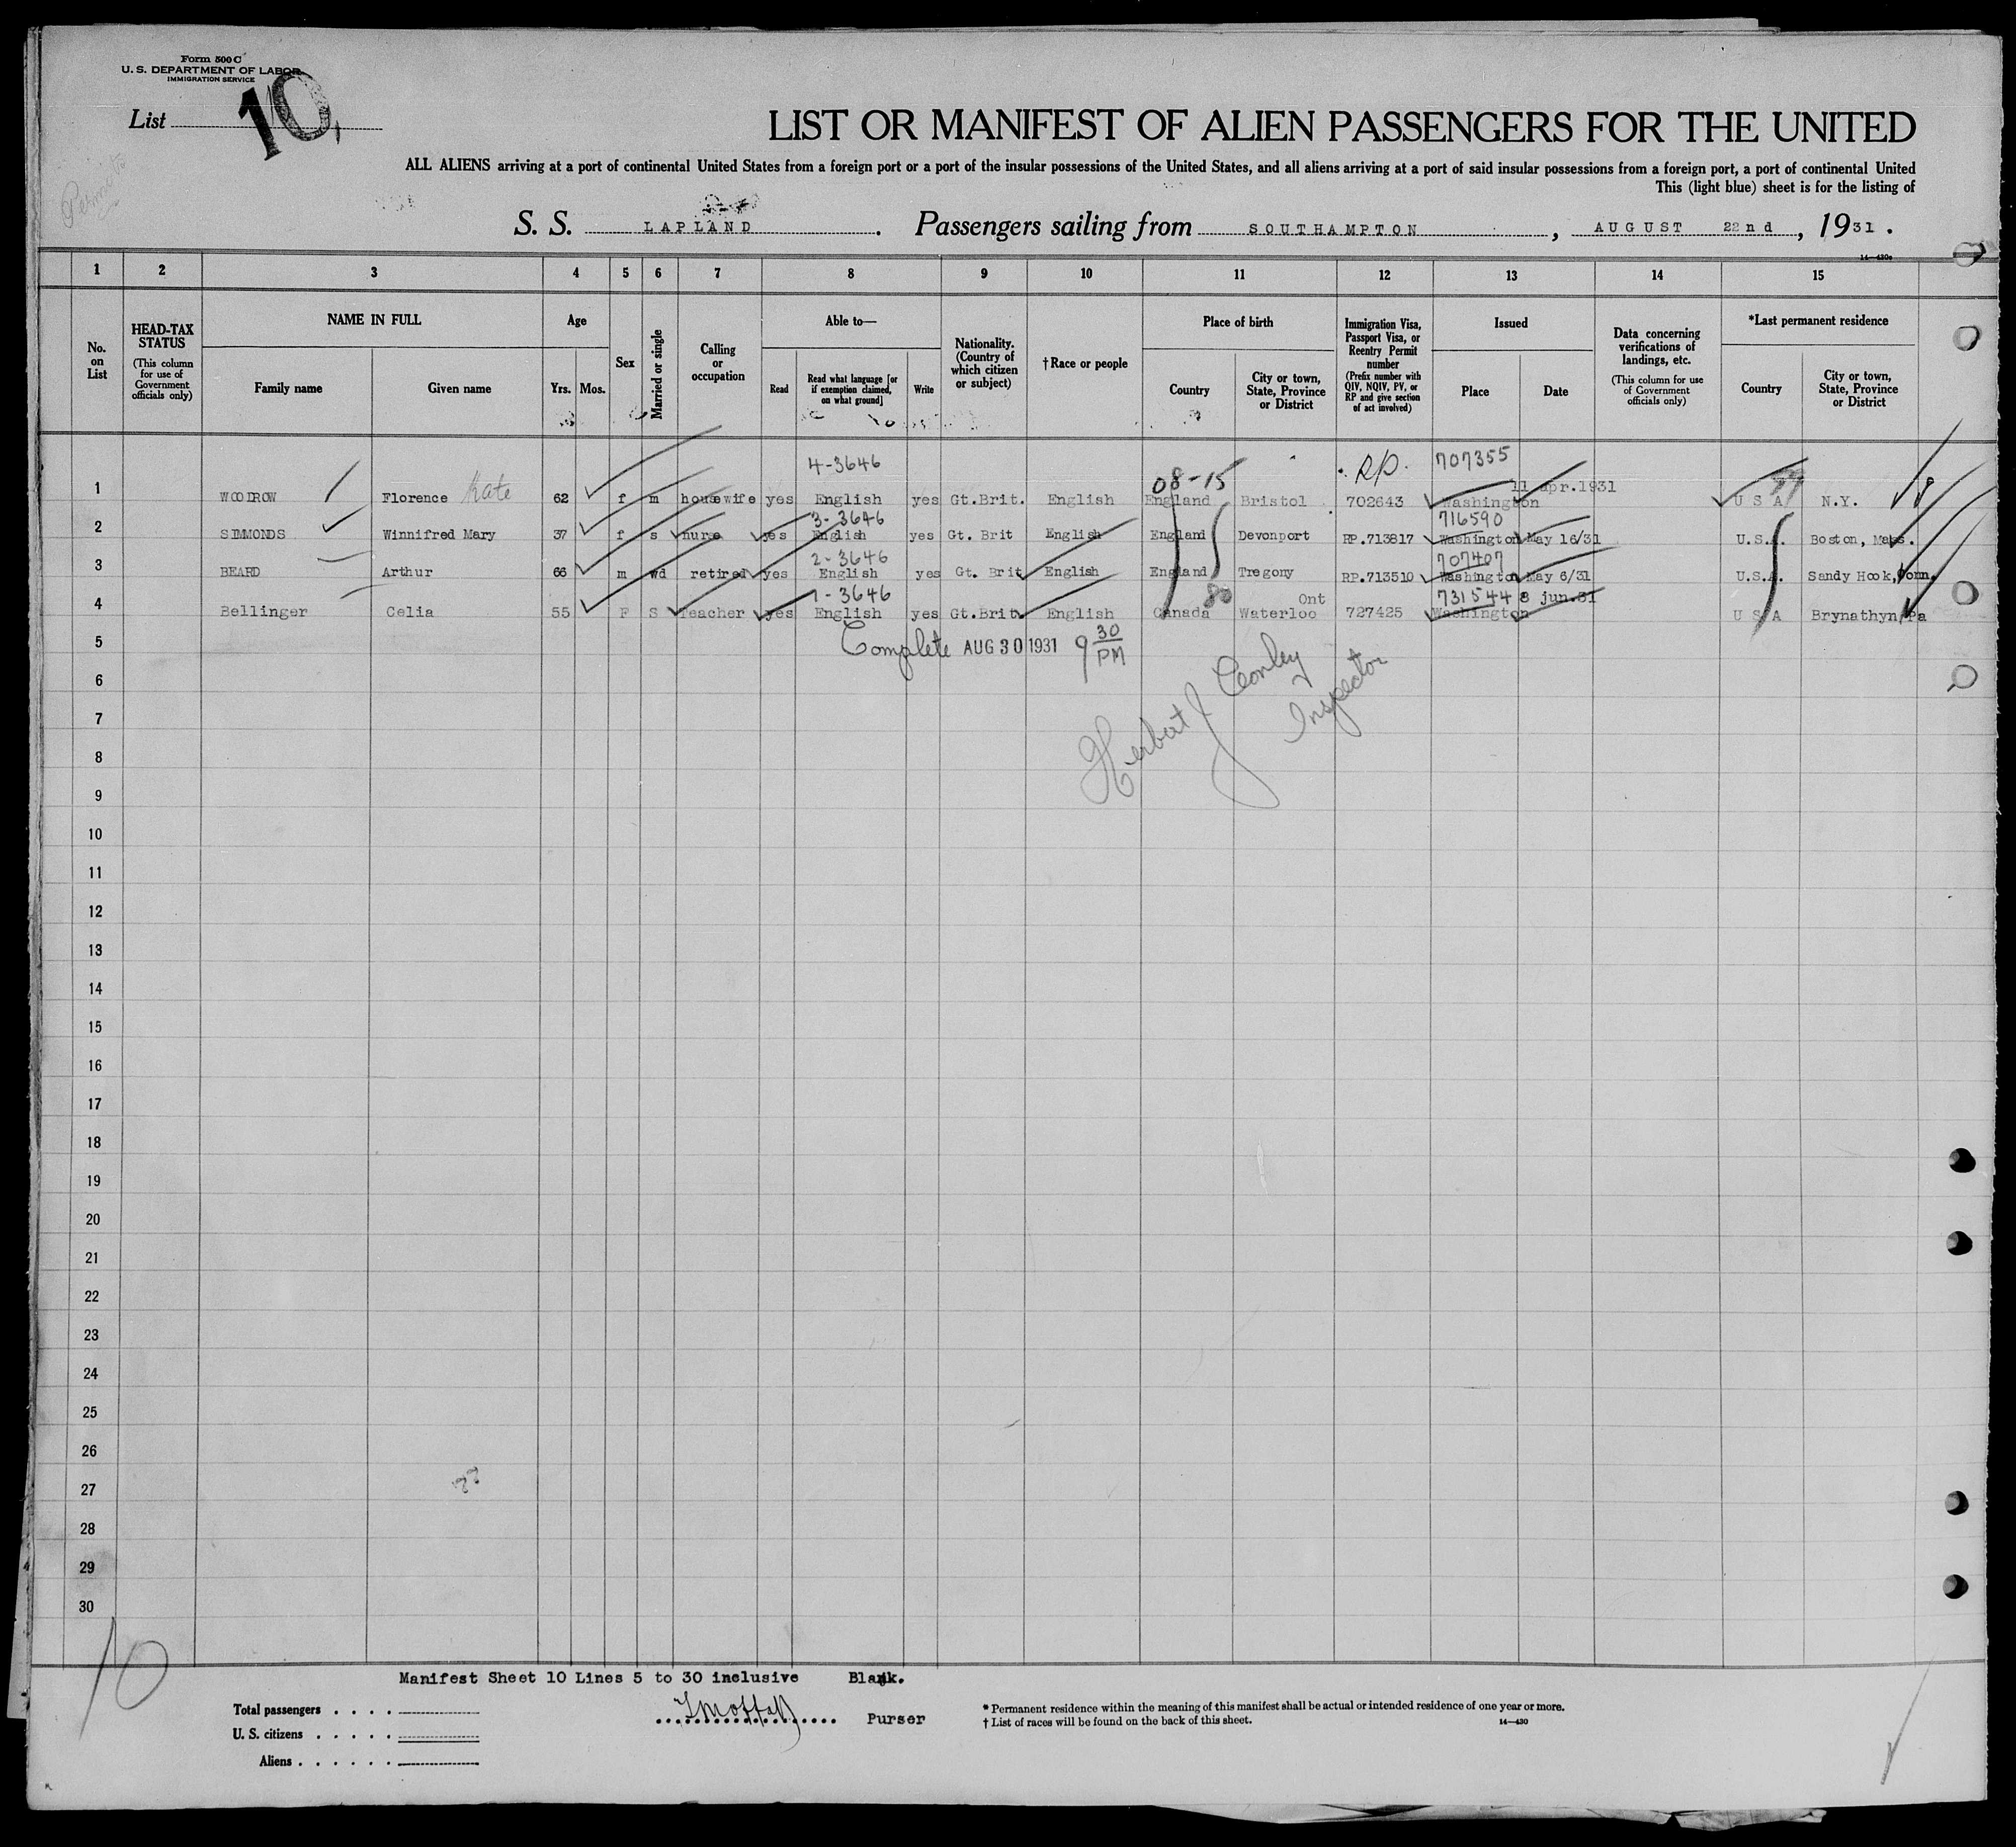 Form 500 C
U. S. DEPARTMENT OF LABOR
IMMIGRATION SERVICE
List 10
LIST OR MANIFEST OF ALIEN PASSENGERS FOR THE UNITED
ALL ALIENS arriving at a port of continental United States from a foreign port or a port of the insular possessions of the United States, and all aliens arriving at a port of said insular possessions from a foreign port, a port of continental United
This (light blue) sheet is for the listing of
S. S. LAPLAND . Passengers sailing from SOUTHAMPTON , AUGUST 22nd , 1931 .
14—430c
1 2 3 4 5 6 7 8 9 10 11 12 13 14 15
No. on List
HEAD-TAX STATUS (This column for use of Government officials only)
NAME IN FULL
Family name Given name
Age
Yrs. Mos.
Sex
Married or single
Calling or occupation
Able to—
Read Read what language [or if exemption claimed, on what ground] Write
Nationality. (Country of which citizen or subject)
† Race or people
Place of birth
Country City or town, State, Province or District
Immigration Visa, Passport Visa, or Reentry Permit number (Prefix number with QIV, NQIV, PV, or RP and give section of act involved)
Issued
Place Date
Data concerning verifications of landings, etc. (This column for use of Government officials only)
*Last permanent residence
Country City or town, State, Province or District
4-3646 08-15 RP. 707355
1 WOODROW Florence Kate 62 f m housewife yes English yes Gt.Brit. English England Bristol 702643 Washington 11 apr.1931 U S A N.Y.
3-3646 716590
2 SIMMONDS Winnifred Mary 37 f s nurse yes English yes Gt. Brit English England Devonport RP.713817 Washington May 16/31 U.S.A. Boston, Mass.
2-3646 707407
3 BEARD Arthur 66 m wd retired yes English yes Gt. Brit English England Tregony RP.713510 Washington May 6/31 U.S.A. Sandy Hook, Conn.
1-3646 80 Ont 731544 8 jun.31
4 Bellinger Celia 55 F S Teacher yes English yes Gt.Brit. English Canada Waterloo 727425 Washington U S A Brynathyn Pa
5 Complete AUG 30 1931 9 30 PM
Herbert J Conley
Inspector
6
7
8
9
10
11
12
13
14
15
16
17
18
19
20
21
22
23
24
25
26
27
28
29
30
10
Manifest Sheet 10 Lines 5 to 30 inclusive Blank.
Total passengers . . . .
U. S. citizens . . . . .
Aliens . . . . . .
Purser
* Permanent residence within the meaning of this manifest shall be actual or intended residence of one year or more.
† List of races will be found on the back of this sheet.
14—430